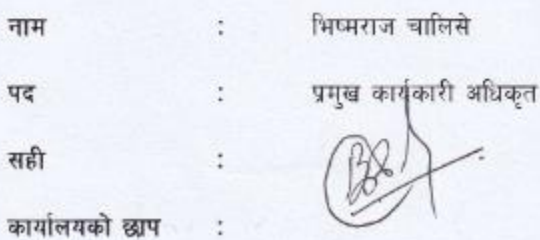 नाम : भिष्मराज चालिसे
पद : प्रमुख कार्यकारी अधिकृत
सही :
कार्यालयको छाप :